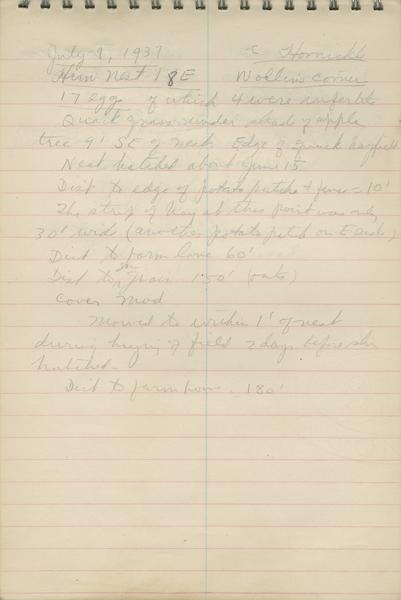 July 9, 1937 C Hornickle
Hun Nest 18E Wollin's corner
17 eggs of which 4 were infertile
Quack grass under shade of apple
tree 9' SE of nest. Edge of quack hayfield
Nest hatched about June 15
Dist to edge of potato patch + fence = 10'
The strip of hay at this point was only
30' wide (another potato patch on E side)
Dist to farm lane 60'
Dist to sm grain 150' (oats)
Cover Mod
Mowed to within 1' of nest
during haying of field 2 days before she
hatched.
Dist to farm house 180'